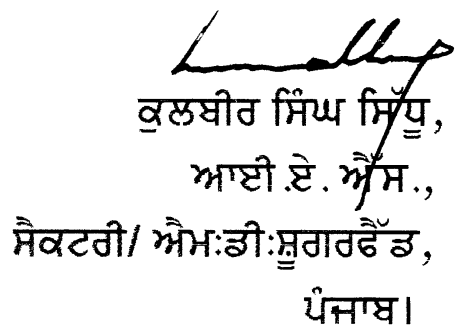 ਕੁਲਬੀਰ ਸਿੰਘ ਸਿੱਧੂ,
ਆਈ.ਏ. ਐੱਸ.,
ਸੈਕਟਰੀ/ ਐਮ:ਡੀ:ਸ਼ੂਗਰਫੈੱਡ,
ਪੰਜਾਬ।